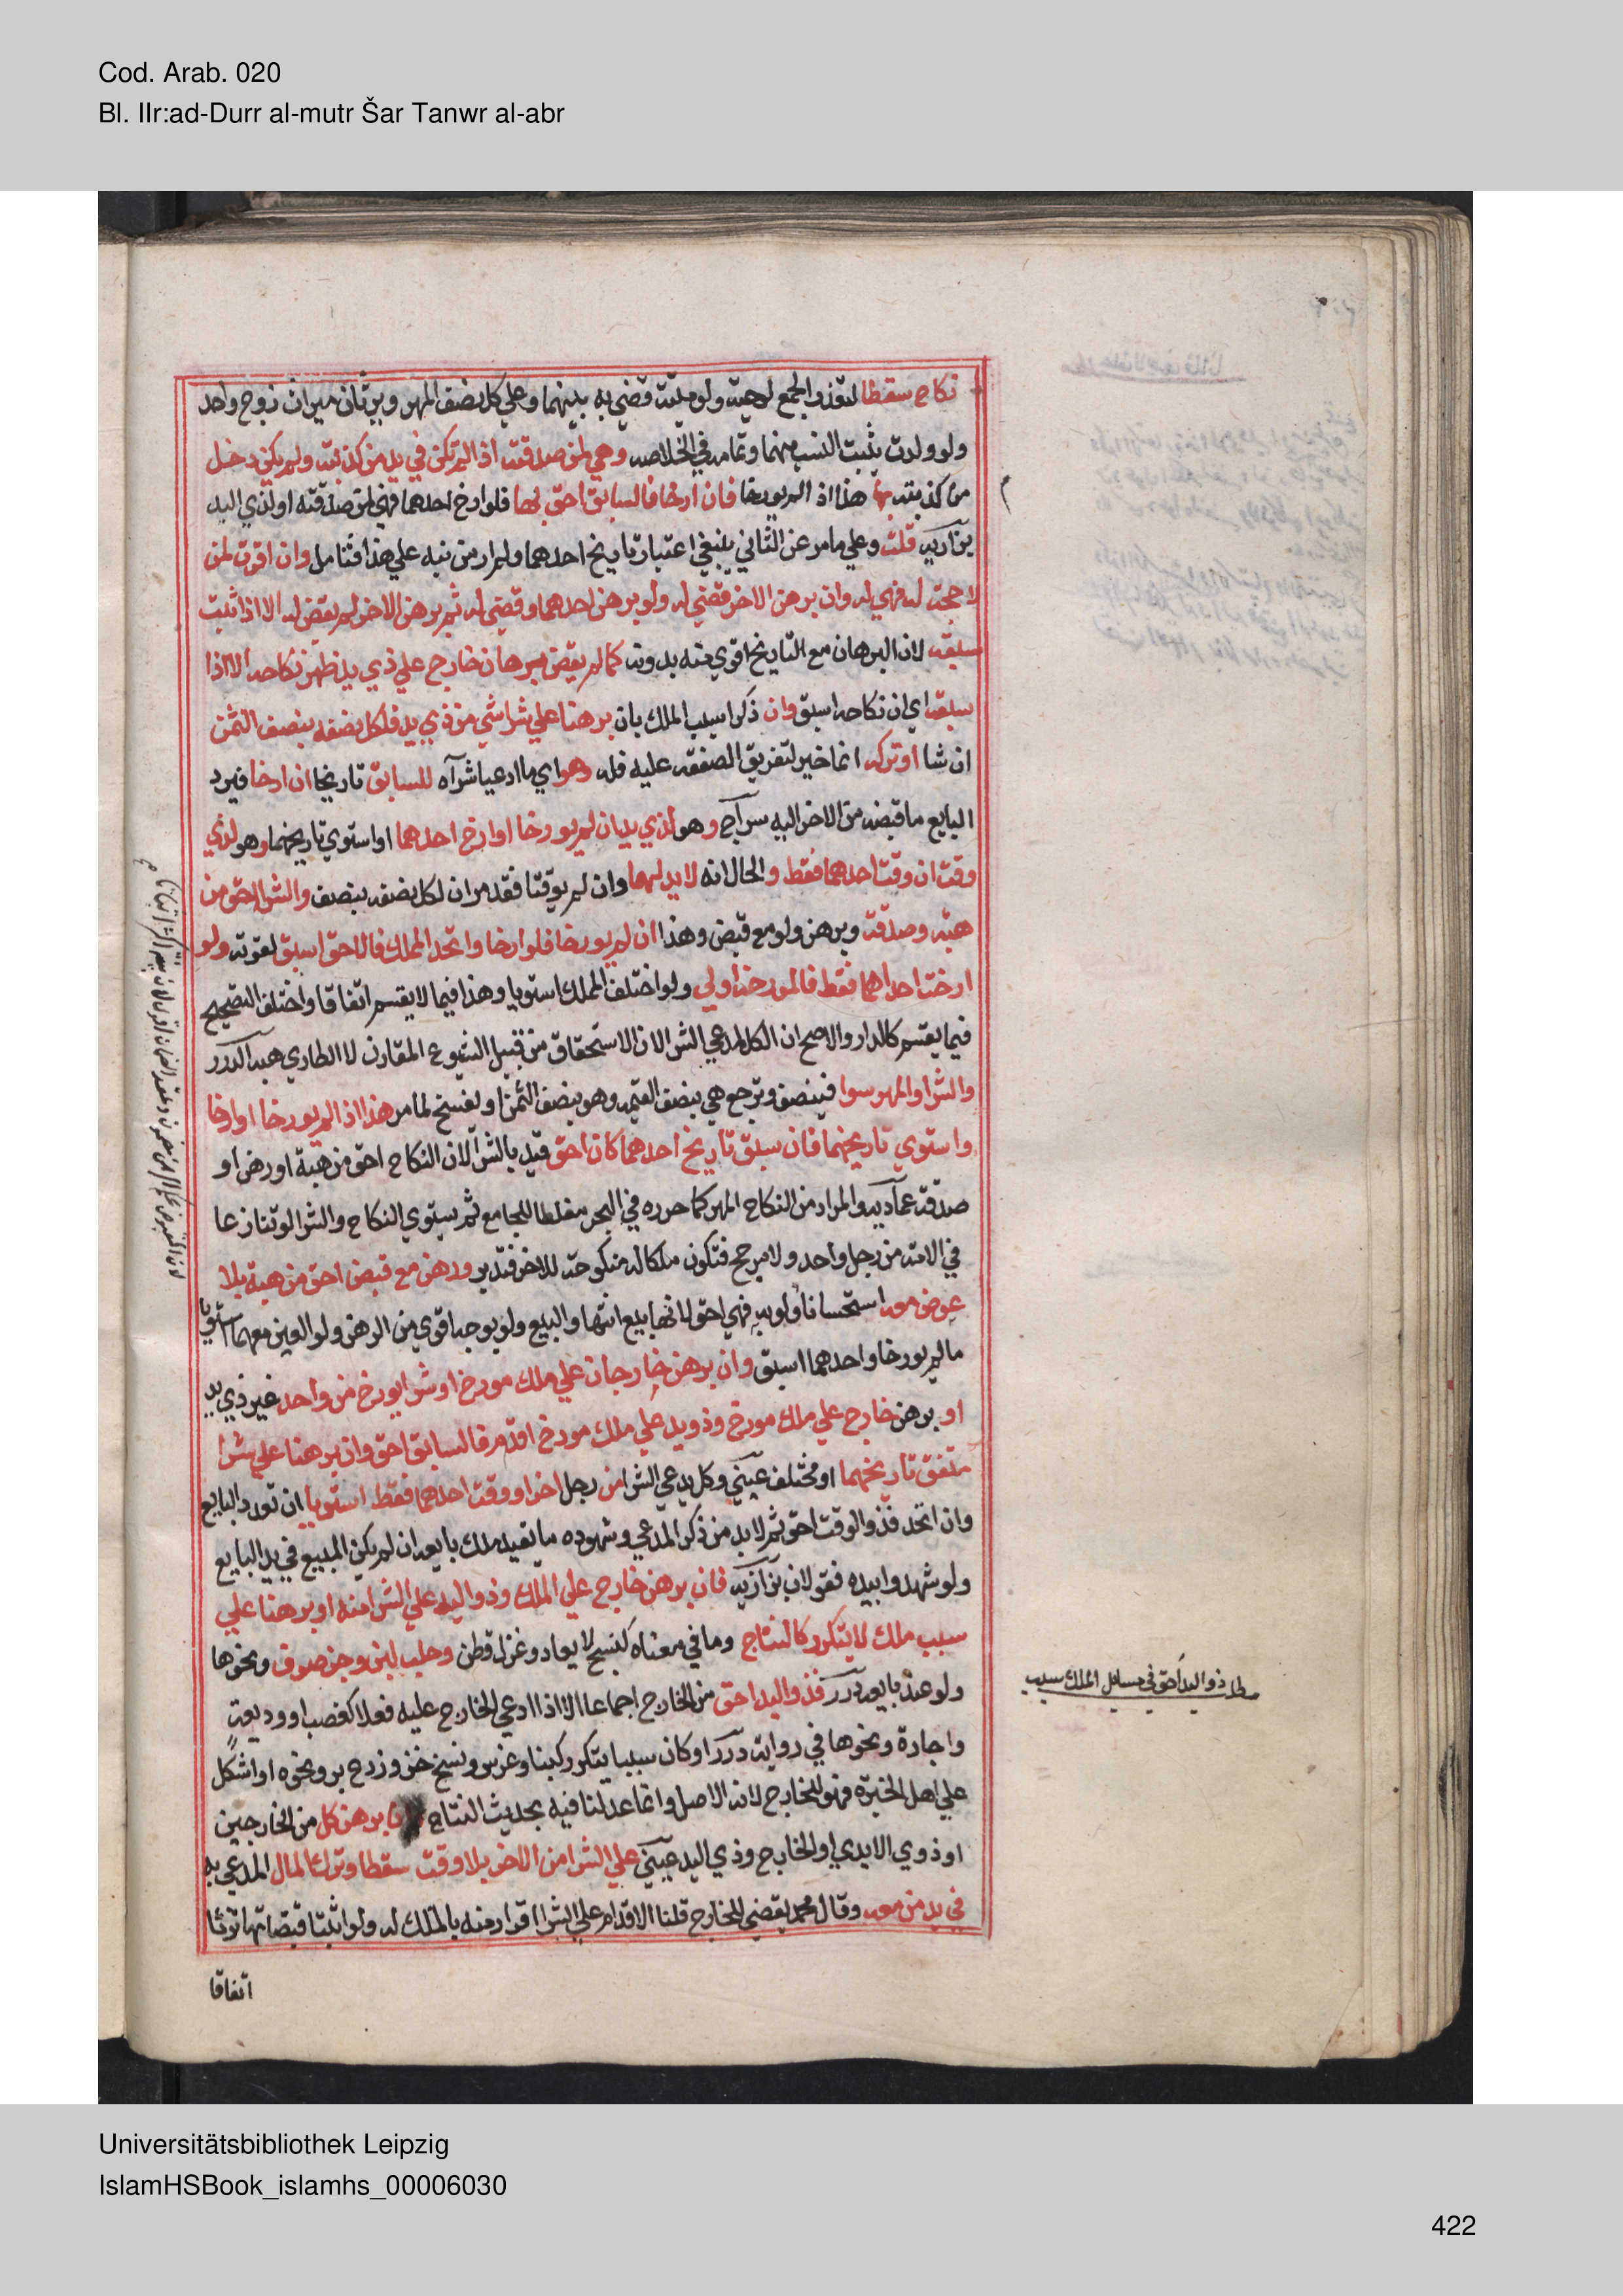 Cod. Arab. 020
Bl. IIr:ad-Durr al-mutr Šar Tanwr al-abr
نكاح سقطا لتعذر الجمع لوحية ولو ميتة قضي به بينهما وعلي كل نصف المهر ويرثان ميراث زوج واحد
ولو ولدت يثبت النسب منهما وتمامه في الخلاصه وهي لمن صدقته اذا لم تكن في يد من كذبته ولم يكن دخل
من كذبته بها هذا اذا لم يورخا فان ارخا فالسابق احق بها فلو ارخ احدهما فهي لمن صدقته او لذي اليد
بزازيه قلت وعلي ما مر عن الثاني ينبغي اعتبار تاريخ احدهما ولم ار من نبه علي هذا فتامل وان اقرت لمن
لا حجة له فهي له وان برهن الاخر قضي له ولو برهن احدهما وقضي له ثم برهن الاخر لم يقض له الا اذا ثبت
سبقه لان البرهان مع التاريخ اقوي منه بدونه كما لم يقض ببرهان خارج علي ذي يد ظهر نكاحه الا اذا
سبقه اي ان نكاحه اسبق وان ذكرا سبب الملك بان برهنا علي شرا شي من ذي يد فلكل نصفه بنصف الثمن
ان شا او تركه انما خير لتفريق الصفقه عليه فله وهو اي ما ادعيا شرآه للسابق تاريخا ان ارخا فيرد
البايع ما قبضه من الاخر اليه سراج وهو لذي يد ان لم يورخا او ارخ احدهما او استوي تاريخهما وهو لذي
وقت ان وقت احدهما فقط والحال انه لا يد لهما وان لم يوقتا فقد مر ان لكل نصفه بنصف والشرا احق من
هبه وصدقة وبرهن ولو مع قبض وهذا ان لم يورخا فلو ارخا واتحد المملك فالاحق اسبق لقوته ولو
ارخت احداهما فقط فالمورخه اولي ولو اختلف المملك استويا وهذا فيما لا يقسم اتفاقا واختلف التصحيح
فيما يقسم كالدار والاصح ان الكل لمدعي الشرا لان الاستحقاق من قبيل الشيوع المقارن لا الطاري هبه الدرر
والشرا والمهر سوا فينصف وترجع هي بنصف القيمه وهو بنصف الثمن او يفسخ لما مر هذا اذا لم يورخا او ارخا
واستوي تاريخهما فان سبق تاريخ احدهما كان احق قيد بالشرا لان النكاح احق من هبة او رهن او
صدقة عماديه والمراد من النكاح المهر كما حرره في البحر مغلطا للجامع ثم يستوي النكاح والشرا لو تنازعا
في الامة من رجل واحد ولا مرجح فتكون ملكا له منكوحة للاخر فتدبر ورهن مع قبض احق من هبة بلا
عوض معه استحسانا ولو به فهي احق لانها بيع انتها والبيع ولو بوجه اقوي من الرهن ولو العين معهما استويا
ما لم يورخا واحدهما اسبق وان برهن خارجان علي ملك مورخ او شرا مورخ من واحد غير ذي يد
او برهن خارج علي ملك مورخ وذو يد علي ملك مورخ اقدم فالسابق احق وان برهنا علي شرا
متفق تاريخهما او مختلف عيني وكل يدعي الشرا من رجل اخر او وقت احدهما فقط استويا ان تعدد البايع
وان اتحد فذو الوقت احق ثم لا بد من ذكر المدعي وشهوده ما يفيد ملك بايعه ان لم يكن المبيع في يد البايع
ولو شهدوا بيده فقولان بزازيه فان برهن خارج علي الملك وذو اليد علي الشرا منه او برهنا علي
سبب ملك لا يتكرر كالنتاج وما في معناه كنسج لا يعاد وغزل قطن وحلب لبن وجز صوف ونحوها
ولو عند بايعه درر فذو اليد احق من الخارج اجماعا الا اذا ادعي الخارج عليه فعلا كغصب او وديعة
واجارة ونحوها في رواية درر او كان سببا يتكرر كبنا وغرس ونسج خز وزرع بر ونحوه او اشكل
علي اهل الخبرة فهو للخارج لانه الاصل وانما عدلنا فيه بحديث النتاج وان برهن كل من الخارجين
او ذوي الايدي او الخارج وذي اليد عيني علي الشرا من الاخر بلا وقت سقطا وترك المال المدعي به
في يد من معه وقال محمد يقضي للخارج قلنا الاقدام علي الشرا اقرار منه بالملك له ولو اثبتا قبضا تهاترتا
اتفاقا
مط ذو اليد احق في مسايل الملك بسبب
Universitätsbibliothek Leipzig
IslamHSBook_islamhs_00006030
422